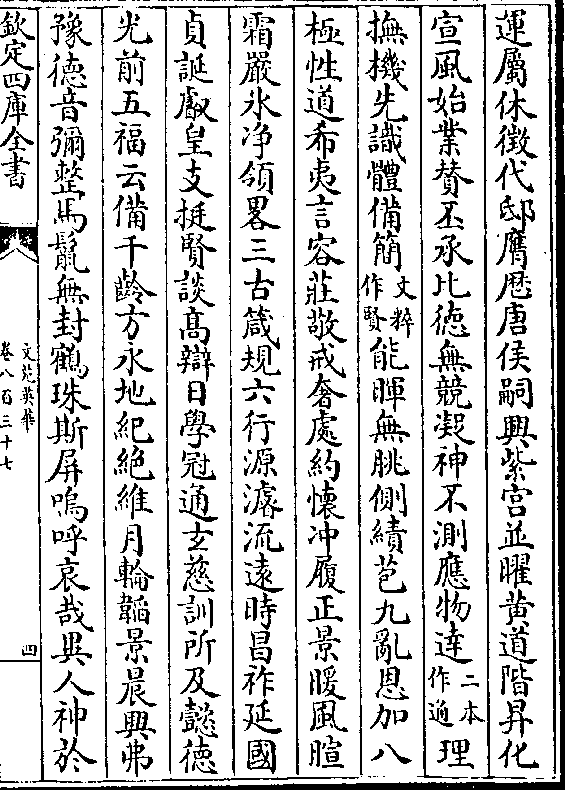 運屬休徴代邸膺厯唐侯嗣興紫宫並曜黄道階昇化
宣風始業賛丕承比徳無競凝神不測應物達二本作通理
撫機先識體備簡文粹作賢能暉無朓側績苞九亂恩加八
極性道希夷言容莊敬戒奢處約懐冲履正景暖風暄
霜嚴氷净領畧三古箴規六行源濬流遠時昌祚延國
貞誕叡皇支挺賢談髙辯日學冠通玄慈訓所及懿徳
光前五福云備千齡方永地紀絶維月輪韜景晨興弗
豫徳音彌整馬鬛無封鶴珠斯屏嗚呼哀哉異人神於
欽定四庫全書
文苑英華
卷八百三十七
四